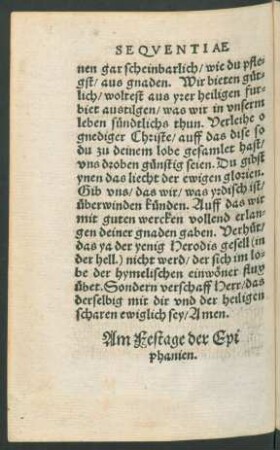 SEQVENTIAE
nen gar scheinbarlich/ wie du pfle
gst/ aus gnaden. Wir bieten güt
lich/ woltest aus yrer heiligen fur
biet austilgen/ was wir in vnserm
leben sündtlichs thun. Verleihe o
gnediger Christe/ auff das dise so
du zu deinem lobe gesamlet hast/
vns droben günstig seien. Du gibst
ynen das liecht der ewigen glorien.
Gib vns/ das wir/ was yrdisch ist/
überwinden künden. Auff das wir
mit guten wercken vollend erlan
gen deiner gnaden gaben. Verhüt/
das ya der yenig Herodis gesell (in
der hell.) nicht werd/ der sich im lo
be der hymelischen einwöner fluy
übet. Sondern verschaff Herr/ das
derselbig mit dir vnd der heiligen
scharen ewiglich sey/ Amen.
Am Festage der Epi
phanien.